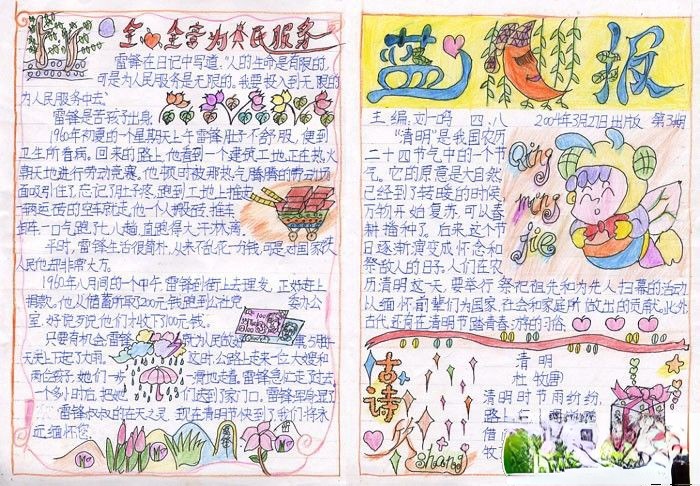 全心全意为人民服务
雷锋在日记中写道:“人的生命是有限的,
可是为人民服务是无限的。我要投入到无限的
为人民服务中去。
雷锋是苦孩子出身
1960年初夏的一个星期天上午雷锋肚子不舒服,便到
卫生所看病。回来的路上,他看到一个建筑工地正在热火
朝天地进行劳动竞赛。他顿时被那热气腾腾的劳动场
面吸引住了,忘记了肚子疼,跑到工地上推走
一辆运砖的空车就走,他一个人搬砖、推车
一口气跑了七八趟,直跑得大汗淋漓。
平时,雷锋生活很简朴,从来不乱花一分钱,可是对国家
人民他却非常大方。
1960年八月间的一个中午,雷锋到街上去理发,正好赶上
捐款。他从储蓄所取了200元钱跑到公社党 委办公
室。好说歹说他们才收下了100元钱。
只要有机会雷锋 为人民做好
天天上下起了大雨。 这时,公路上走来一位大嫂和
两个孩子,她们一步 滑地走着,雷锋急忙走了过去
一个多小时后,把她 们送到了家门口。雷锋浑身湿了
雷锋叔叔的在天之灵,现在清明节快到了我们将永
远缅怀您。
蓝月报
主编:刘一鸣 四、八 2009年3月27日出版 第3期
“清明”是我国农历
二十四节气中的一个节
气。它的原意是大自然
已经到了转暖的时候,
万物开始复苏,可以春
耕播种了。后来,这个节
日逐渐演变成怀念和
祭敌人的日子。人们在农
历清明这一天,要举行祭祀祖先和为先人扫幕的活动
从缅怀前辈们为国家、社会和家庭所做出的贡献。此外
古代,还有在清明节踏青春游的习俗。
Qing
ming
jie
古诗
欣
shang
清明
杜牧
清明时节雨纷纷,
路上
借
牧